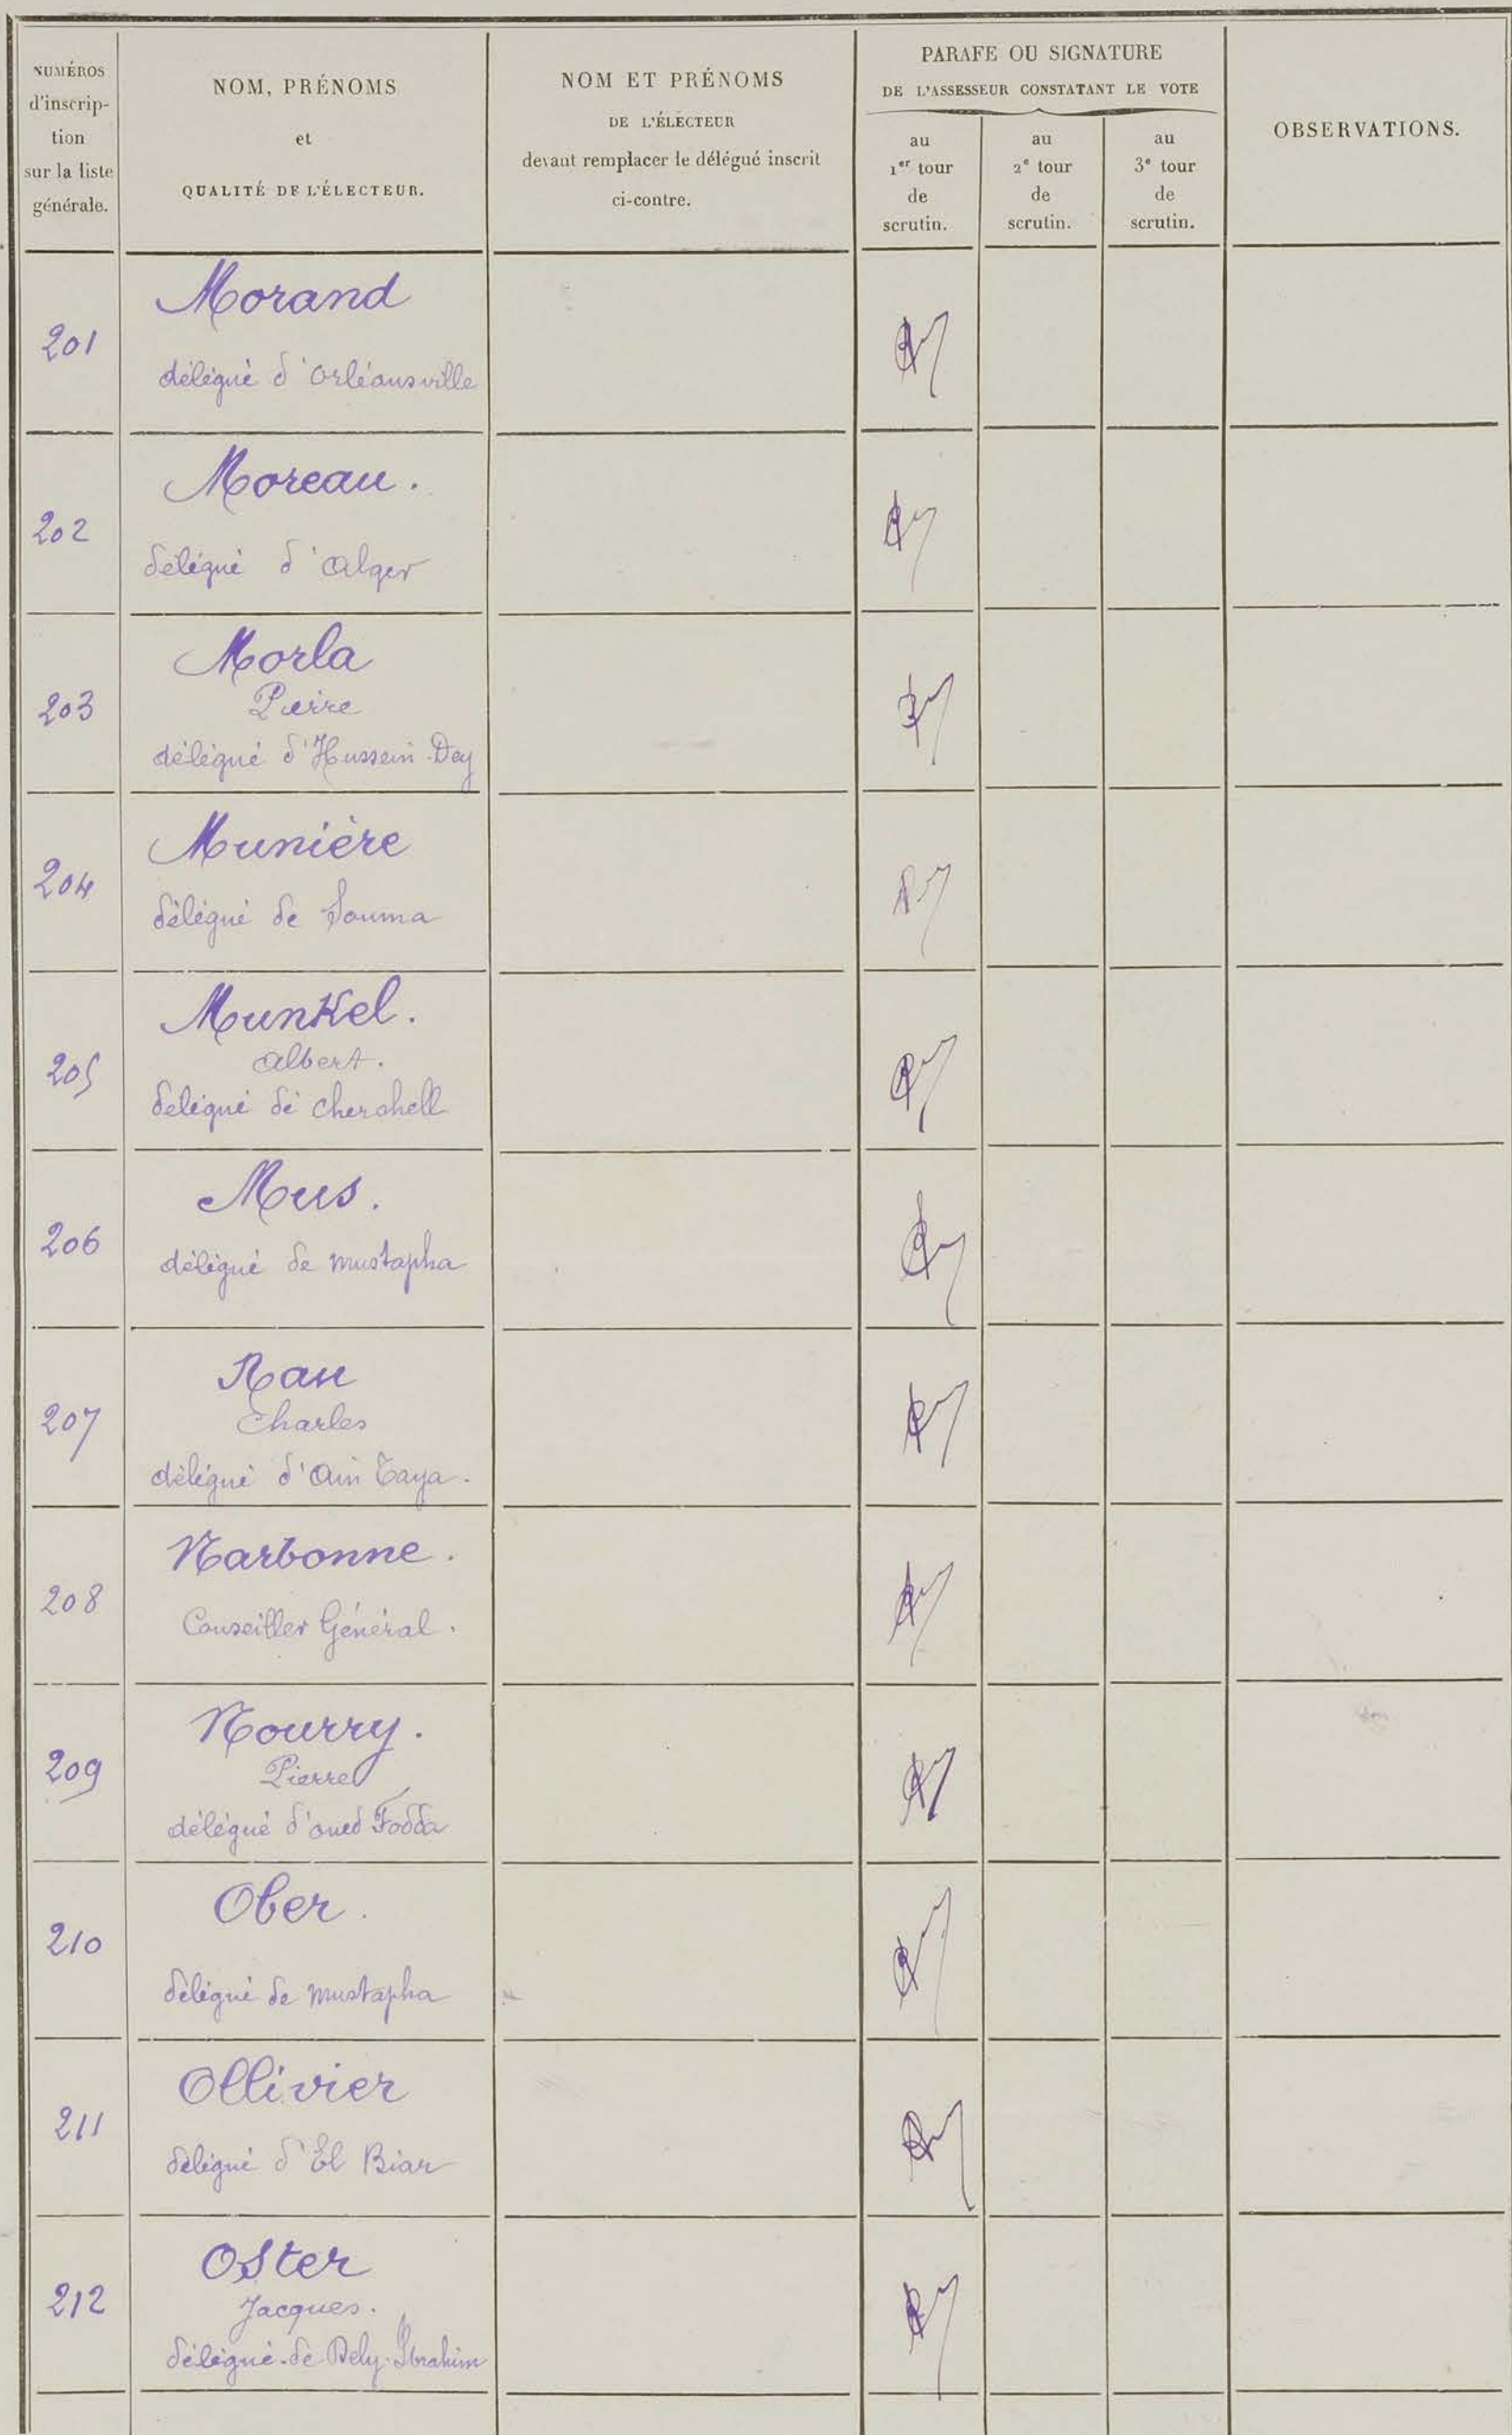 NUMÉROS
d'inscrip-
tion
sur la liste
générale.
NOM, PRÉNOMS
et
QUALITÉ DE L'ÉLECTEUR.
NOM ET PRÉNOMS
DE L'ÉLECTEUR
devant remplacer le délégué inscrit
ci-contre.
PARAFE OU SIGNATURE
DE L'ASSESSEUR CONSTATANT LE VOTE
au
1er tour
de
scrutin.
au
2e tour
de
scrutin.
au
3e tour
de
scrutin.
OBSERVATIONS.
201
Morand
délégué d'Orléansville
202
Moreau.
délégué d'Alger
203
Morla
Pierre
délégué d'Hussein-Dey
204
Munière
délégué de Souma
205
Munkel.
Albert.
délégué de Cherchell
206
Mus.
délégué de Mustapha
207
Nau
Charles
délégué d'Ain Taya.
208
Narbonne.
Conseiller Général.
209
Nourry.
Pierre
délégué d'oued Fodda
210
Ober.
délégué de Mustapha
211
Ollivier
délégué d'El Biar
212
Oster
Jacques.
délégué de Dely-Ibrahim